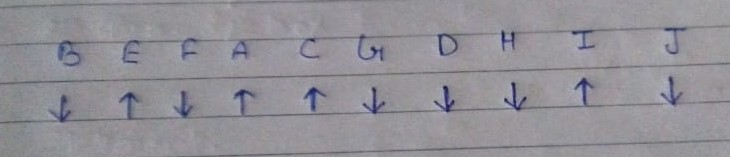 B E F A C G D H I J
↓ ↑ ↓ ↑ ↑ ↓ ↓ ↓ ↑ ↓